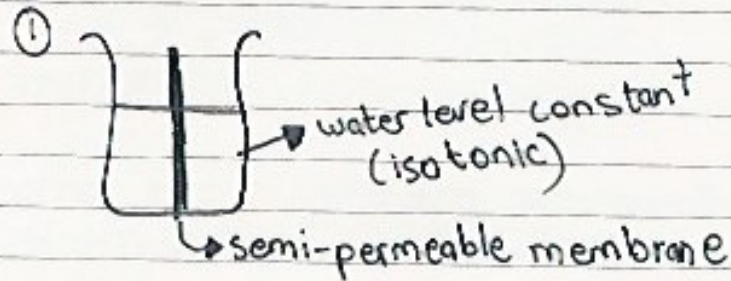 ①
water level constant
(isotonic)
semi-permeable membrane